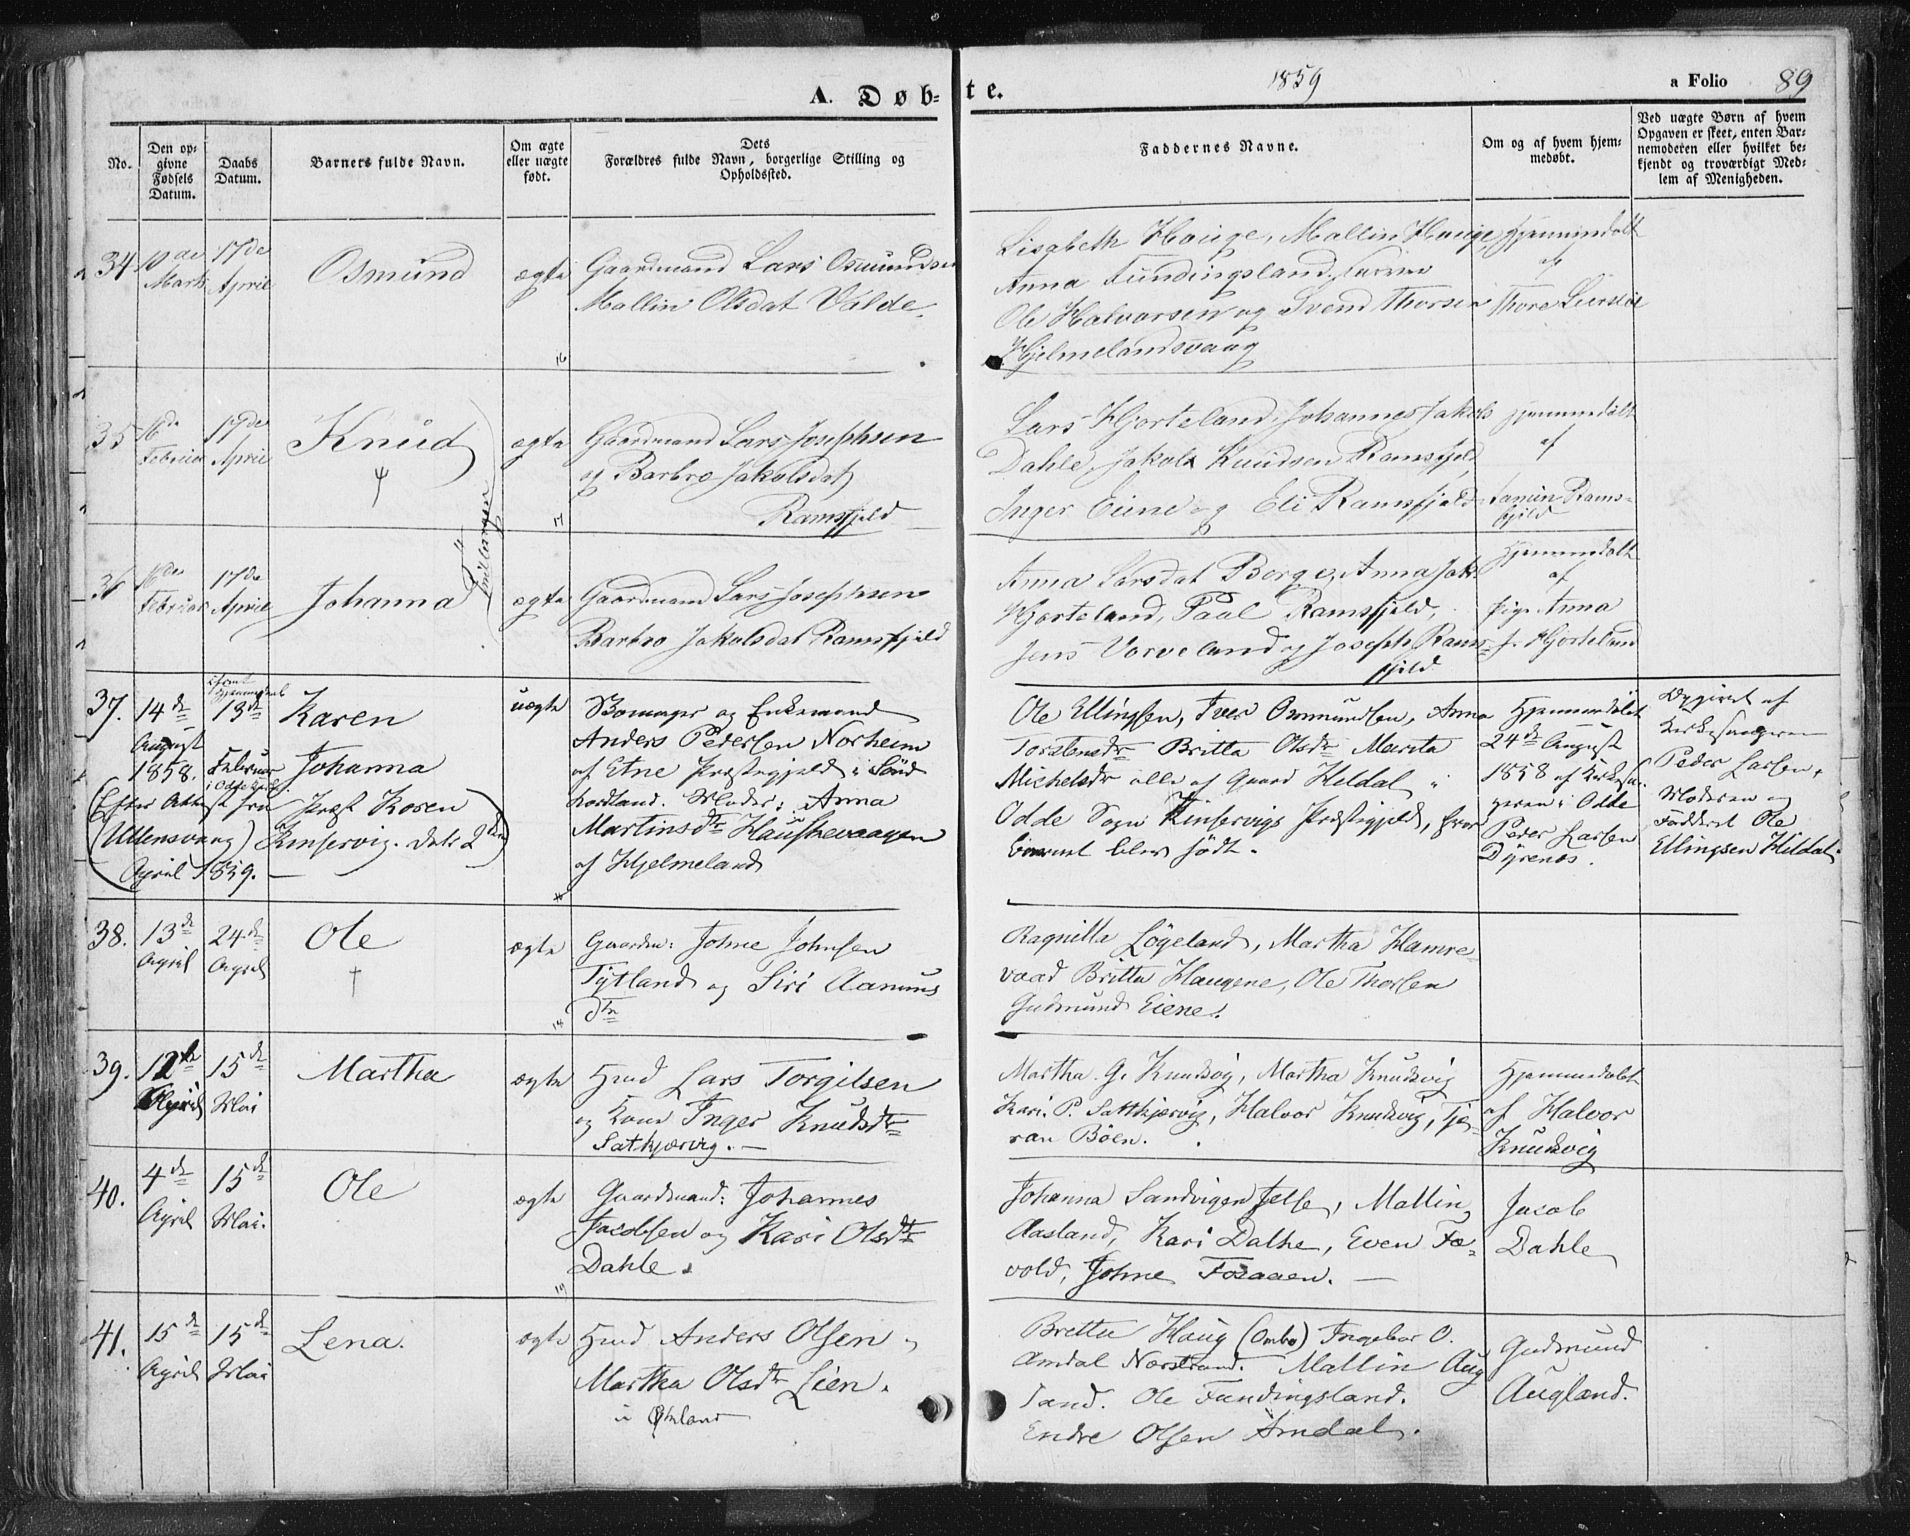 A. Døbte.
1859
a Folio 89
No.
Den opgivne Fødsels Datum.
Daabs Datum.
Barnets fulde Navn.
Om ægte eller uægte født.
Dets Forældres fulde Navn, borgerlige Stilling og Opholdssted.
Faddernes Navne.
Om og af hvem hjemmedøbt.
Ved uægte Børn af hvem Opgaven er skeet, enten Barnemoderen eller hvilket bekjendt og troværdigt Medlem af Menigheden.
34
10de Marts
17de April
Osmund
ægte
Gaardmand Lars Osmundsen
Mallin Olsdat Valde
Lisabeth Hauge, Mallin Hauge
Anna Fundingsland
Ole Halvorsen og Svend Thorsen
Hjelmelandsvaag
Hjemmedøbt
af
Thore
35
16de Februar
17de April
Knud
Tvillinger
ægte
Gaardmand Lars Josephsen
og Barbro Jakobsdat
Ramsfjeld
Lars Hjorteland, Johannes Jakobs
Dahle, Jakob Knudsen Ramsfjeld
Inger Eiene og Eli Ramsfjeld
Hjemmedøbt
af
Ramsfjeld
36
16de Februar
17de April
Johanna
ægte
Gaardmand Lars Josephsen
Barbro Jakobsdat Ramsfjeld
Anna Larsdat Borge, Anna Jak.
Hjorteland, Paal Ramsfjeld,
Jens Vorveland og Joseph Ramsfjeld
Hjemmedøbt
af
Pige Anna
J. Hjorteland
37.
14de August 1858.
13de Februar
Karen
Johanna
(Efter Attest fra Præst Koren
(Ullensvang) Kinservig. Dat: 2den
April 1859.
uægte
og Enkemand
Anders Pedersen Norheim
af Etne Præstegjeld i Søndhordland. Moder: Anna
Martinsdtr Hauskevaagen
af Hjelmeland
Ole Ellingsen, Iver Ommundsen, Anna
Torstensdtr Britta Olsdtr Marita
Michelsdtr alle af Gaard Kildal
Odde Sogn Kinservigs Præstegjeld, hvor
barnet blev født.
Hjemmedøbt
24de August
1858 af Kirkesangeren i Odde
Peder Larsen
Dyrenes.
Opgivet af
Kirkesangeren
Peder Larsen,
Moderen og
Fadderet Ole
Ellingsen Kildal.
38.
13de April
24de April
Ole
†
ægte
Gaardm: Johne Johnsen
Tytland og Siri Aamunsdtr
Ragnilla Løgeland, Martha Hamrevaad Britta Haugene, Ole Thorsen
Gudmund Eiene.
39.
12te April
15de Mai
Martha
ægte
Hmd Lars Torgilsen
og Kone Inger Knudsdtr
Satkjærvig. —
Martha G. Knudsvig, Martha Knudsvig
Kari. P. Sattkjærvig, Halvor Knudsvig, Tjeran Bøen.
Hjemmedøbt
af Halvor
Knudsvig
40.
4de April
15de Mai.
Ole
ægte
Gaardmand: Johannes
Jacobsen og Kari Olsdtr
Dahle.
Johanna Sandvigen Jelse, Mallin
Aasland, Kari Dalhe, Even Fævold, Johne Fosaaen. —
Jacob
Dahle
41.
15de April
15de Mai
Lena.
ægte
Hmd Anders Olsen,
Martha Olsdtr Lien.
Britta Haug (Ombo) Ingebor O.
Amdal Nærstrand. Mallin Augland. Ole Fundingsland.
Endre Olsen Amdal.
Gudmund
Augland.